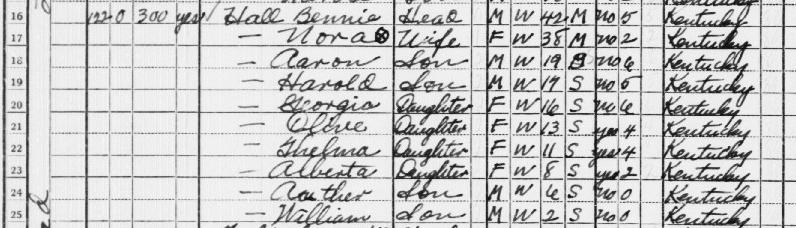 16 122 O 300 yes Hall Bennie Head M W 42 M no 5 Kentucky
17 — Nora ⊗ Wife F W 38 M no 2 Kentucky
18 — Aaron Son M W 19 S no 6 Kentucky
19 — Harold Son M W 17 S no 5 Kentucky
20 — Georgia Daughter F W 16 S no 6 Kentucky
21 — Olive Daughter F W 13 S yes 4 Kentucky
22 — Thelma Daughter F W 11 S yes 4 Kentucky
23 — Alberta Daughter F W 8 S yes 2 Kentucky
24 — Auther Son M W 6 S no 0 Kentucky
25 — William Son M W 2 S no 0 Kentucky